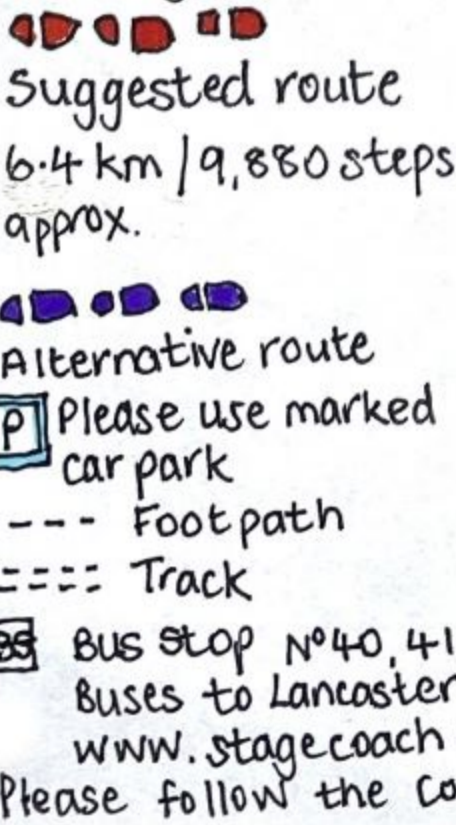 Suggested route
6.4 km / 9,880 steps
approx.
Alternative route
P Please use marked
car park
Footpath
Track
BS Bus stop Nº40, 41
Buses to Lancaster
www.stagecoach
Please follow the Co